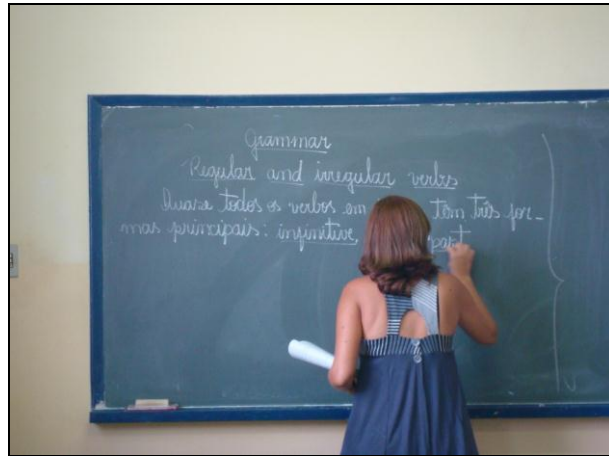 Grammar
Regular and irregular verbs
Quase todos os verbos em têm três for-
mas principais: infinitive, past